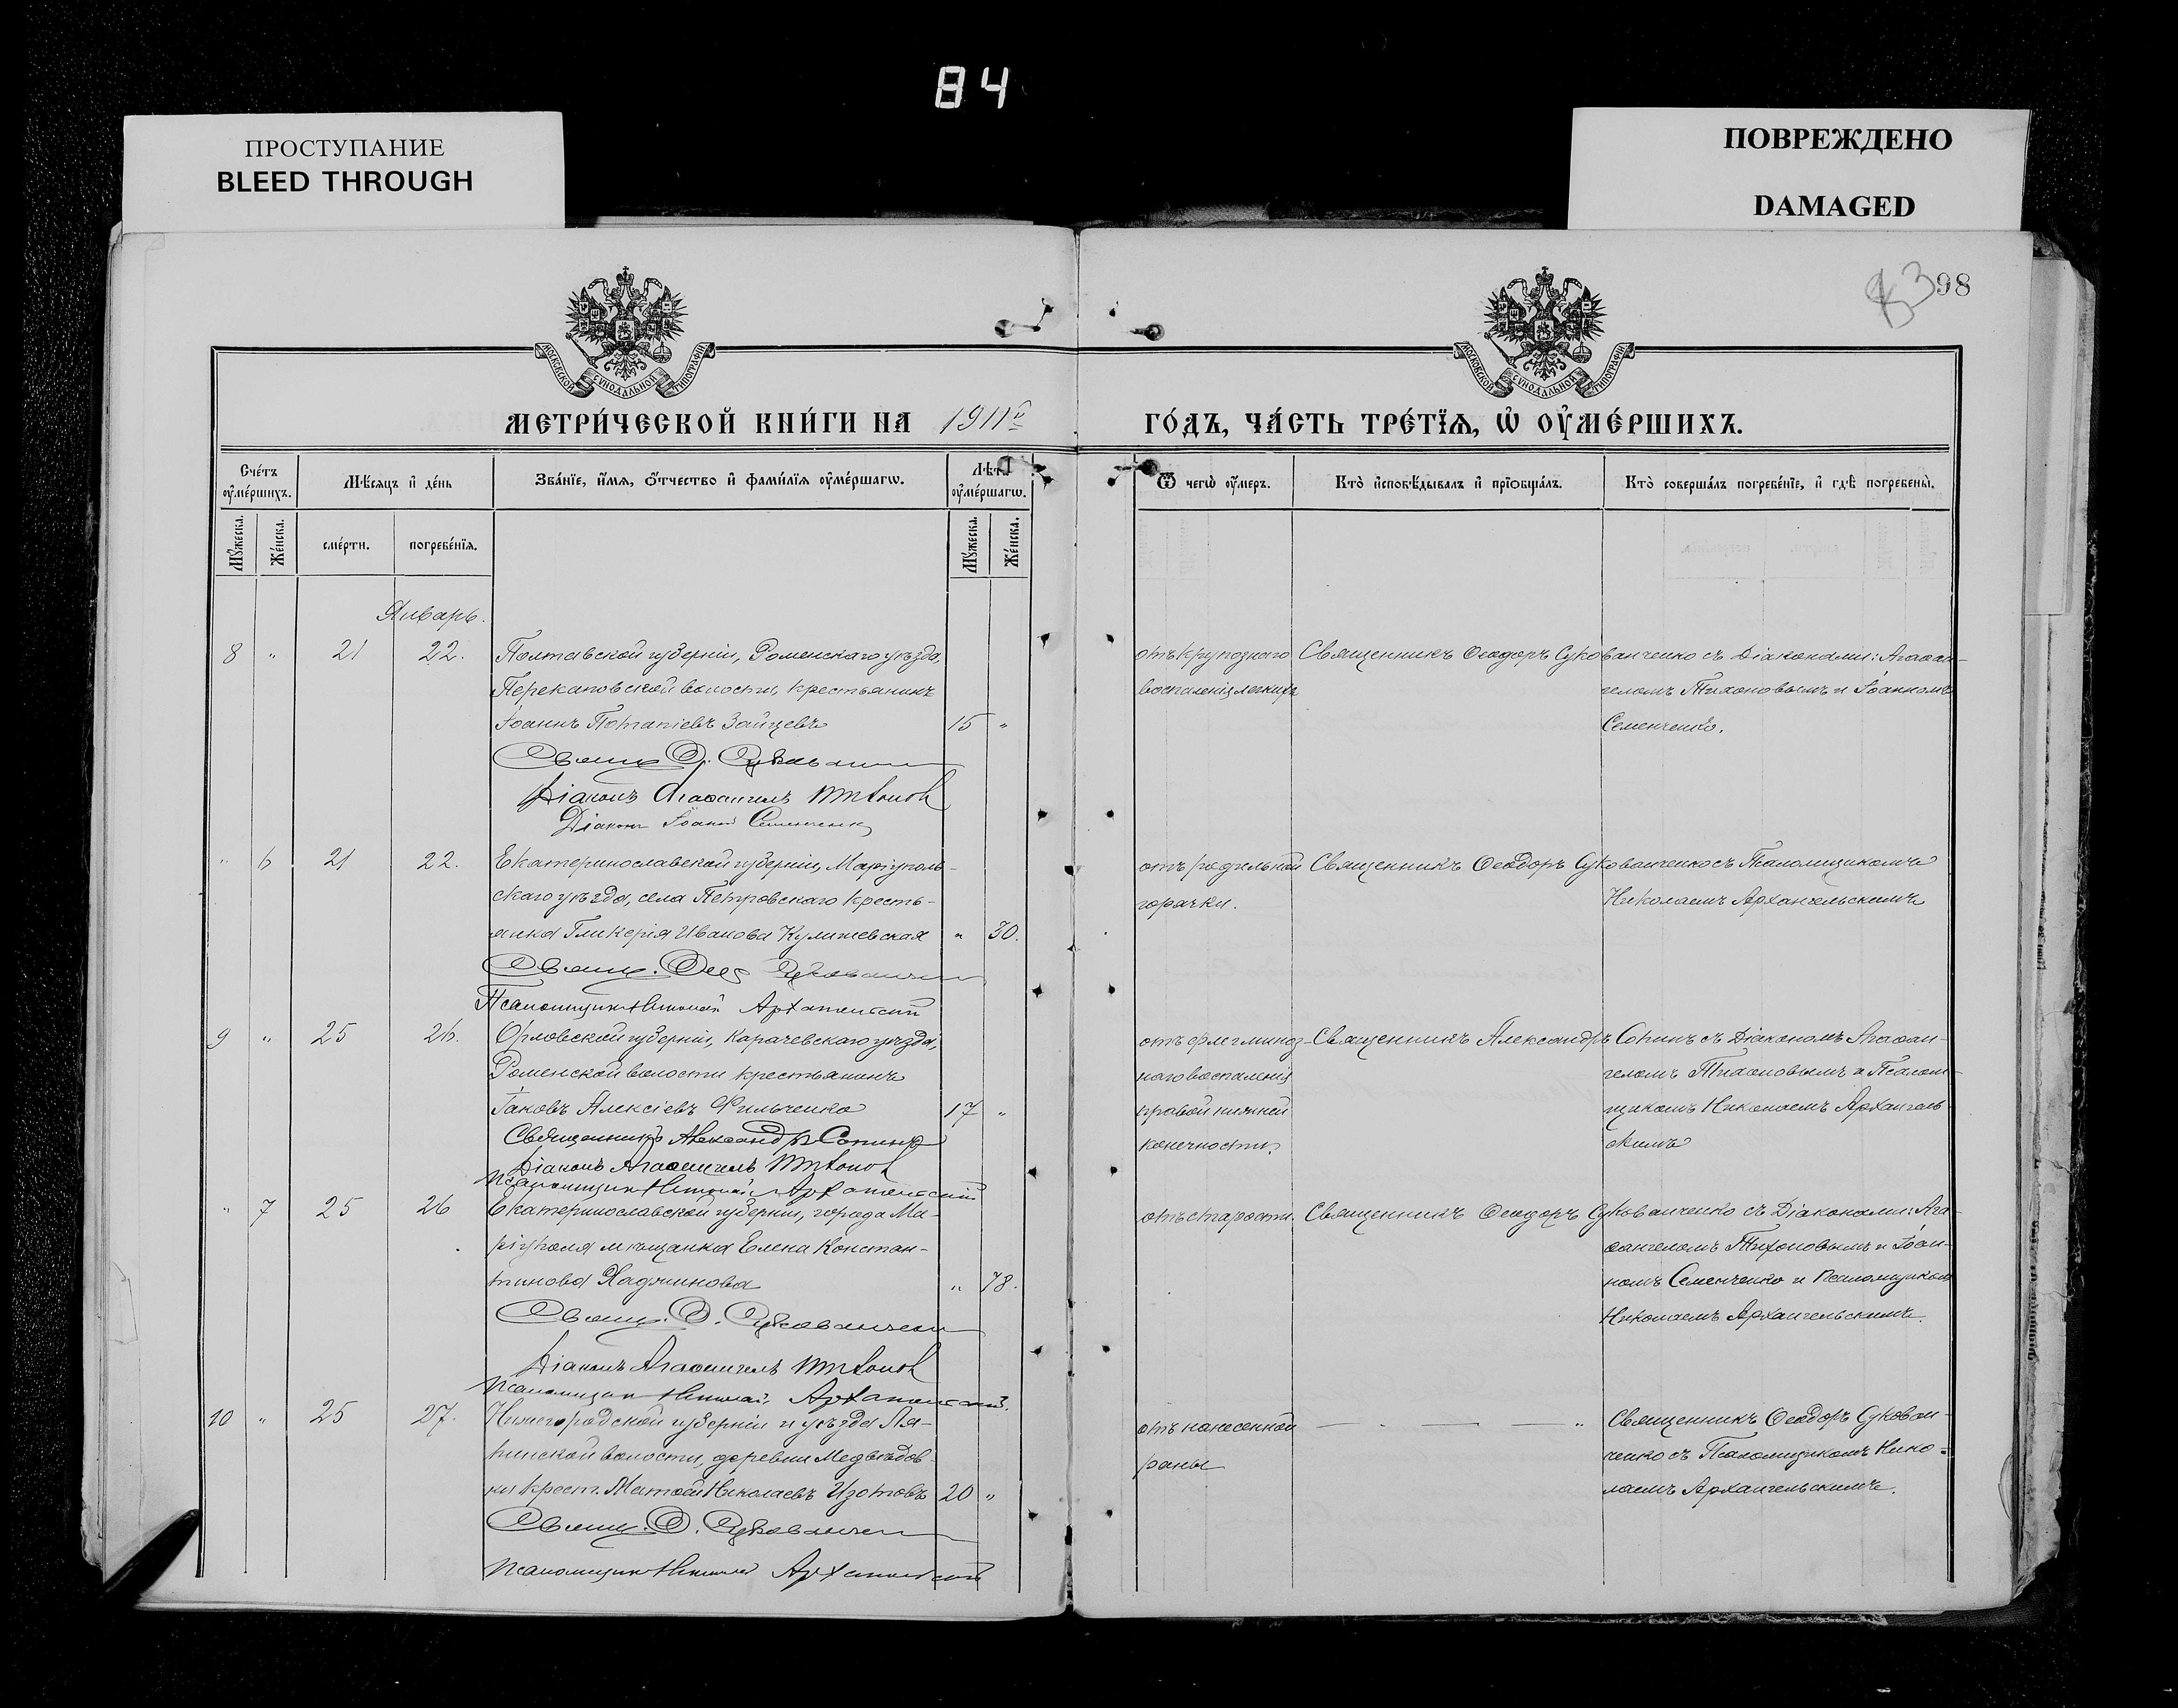 84
ПРОСТУПАНИЕ
BLEED THROUGH
ПОВРЕЖДЕНО
DAMAGED
83
98
МОСКОВСКОЙ СѴНОДАЛЬНОЙ ТИПОГРАФІИ
МОСКОВСКОЙ СѴНОДАЛЬНОЙ ТИПОГРАФІИ
МЕТРИ́ЧЕСКОЙ КНИ́ГИ НА 1911й ГО́ДЪ, ЧА́СТЬ ТРЕ́ТЇѦ, Ѡ҆ ОУ҆МЕ́РШИХЪ.
Сче́тъ оу҆ме́ршихъ.
Мѣ́сяцъ и҆ де́нь
Зва́нїе, и҆́мя, ѻ҆́тчество и҆ фами́лїя оу҆ме́ршагѡ.
Лѣт оу҆ме́ршагѡ.
Ѿ чегѡ̀ оу҆́меръ.
Кто̀ и҆сповѣ́дывалъ и҆ прїѡбща́лъ.
Кто̀ соверша́лъ погребе́нїе, и҆ гдѣ̀ погребены̀.
Мꙋ́жеска.
Же́нска.
сме́рти.
погребе́нїя.
Мꙋ́жеска.
Же́нска.
Январь.
8 " 21 22. Полтавской губерніи, Роменскаго уѣзда,
Перекоповской волости, крестьянинъ
Іоаннъ Потапіевъ Зайцевъ 15 "
Свящ. Ѳ. Сукован
Діаконъ Агаѳангелъ Тихонов
Діаконъ Іоаннъ Семенченко
отъ крупознаго
воспаленія легкихъ
Священникъ Ѳеодоръ Сукованченко съ Діаконами: Агаѳан-
геломъ Тихоновымъ и Іоанномъ
Семенченко.
" 6 21 22. Екатеринославской губерніи, Маріуполь-
скаго уѣзда, села Петровскаго кресть-
янка Гликерія Иванова Кулишевская " 30.
Свящ. Ѳео Сукованчен
Псаломщикъ Николай Архангельский
отъ родильной
горячки.
Священникъ Ѳеодоръ Сукованченко съ Псаломщикомъ
Николаемъ Архангельскимъ
9 " 25 26. Орловской губерніи, Карачевскаго уѣзда,
Роменской волости крестьянинъ
Іаковъ Алексіевъ Фильченко 17 "
Священникъ Александръ Сопинъ
Діаконъ Агаѳангелъ Тихонов
Псаломщикъ Николай Архангельский
отъ флегминоз-
наго воспаленія
правой нижней
конечности.
Священникъ Александръ Сопинъ съ Діакономъ Агаѳан-
геломъ Тихоновымъ и Псалом-
щикомъ Николаемъ Архангель-
скимъ
" 7 25 26 Екатеринославской губерніи, города Ма-
ріуполя мѣщанка Елена Констан-
тинова Хаджинова " 78.
Свящ. Ѳ. Сукованчен
Діаконъ Агаѳангелъ Тихонов
Псаломщикъ Николай Архангельский.
отъ старости.
Священникъ Ѳеодоръ Сукованченко съ Діаконами: Ага-
ѳангеломъ Тихоновымъ и Іоан-
номъ Семенченко и Псаломщиком
Николаемъ Архангельскимъ.
10 " 25 27. Нижегородской губерніи и уѣзда Ля-
пинской волости, деревни Медвѣдов-
ки крест. Матѳей Николаевъ Изотовъ 20 "
Свящ. Ѳ. Сукованчен
Псаломщикъ Николай Архангельский
отъ нанесенной
раны
— . — — "
Священникъ Ѳеодоръ Сукован-
ченко съ Псаломщикомъ Нико-
лаемъ Архангельскимъ.